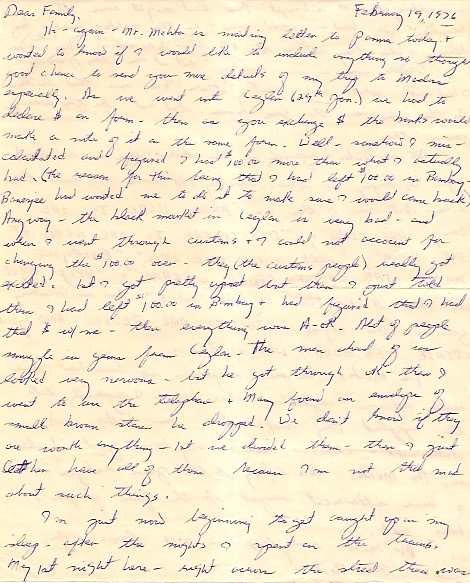 Dear Family, February 19, 1976
Hi - again - Mr. Mehta is mailing letter to Donna today &
wanted to know if I would like to include anything so thought
good chance to send you more details of my trip to Madras
especially. As we went into Ceylon (29th Jan.) we had to
declare $ on form - then as you exchange $ the banks would
make a note of it on the same form. Well - somehow I mis-
calculated and figured I had $100.00 more than what I actually
had. (the reason for this being that I had left $100.00 in Bombay-
Banerjee had wanted me to do it to make sure I would come back)
Anyway - the black market in Ceylon is very bad - and
when I went through customs & I could not account for
changing the $100.00 over - they (the customs people) really got
excited. I got pretty upset but then I just told
them I had left $100.00 in Bombay & had figured that I had
that $ w/me - then everything was A-ok. Alot of people
smuggle in gems from Ceylon - The man ahead of us
looked very nervous - but he got through ok - then I
went to use the telephone & Mary found an envelope of
small brown stones he dropped. We don't know if they
are worth anything - 1st we divided them - then I just
let her have all of them because I'm not that mad
about such things.
I'm just now beginning to get caught up on my
sleep - after the nights I spent on the trains.
My 1st night here - right across the street there was